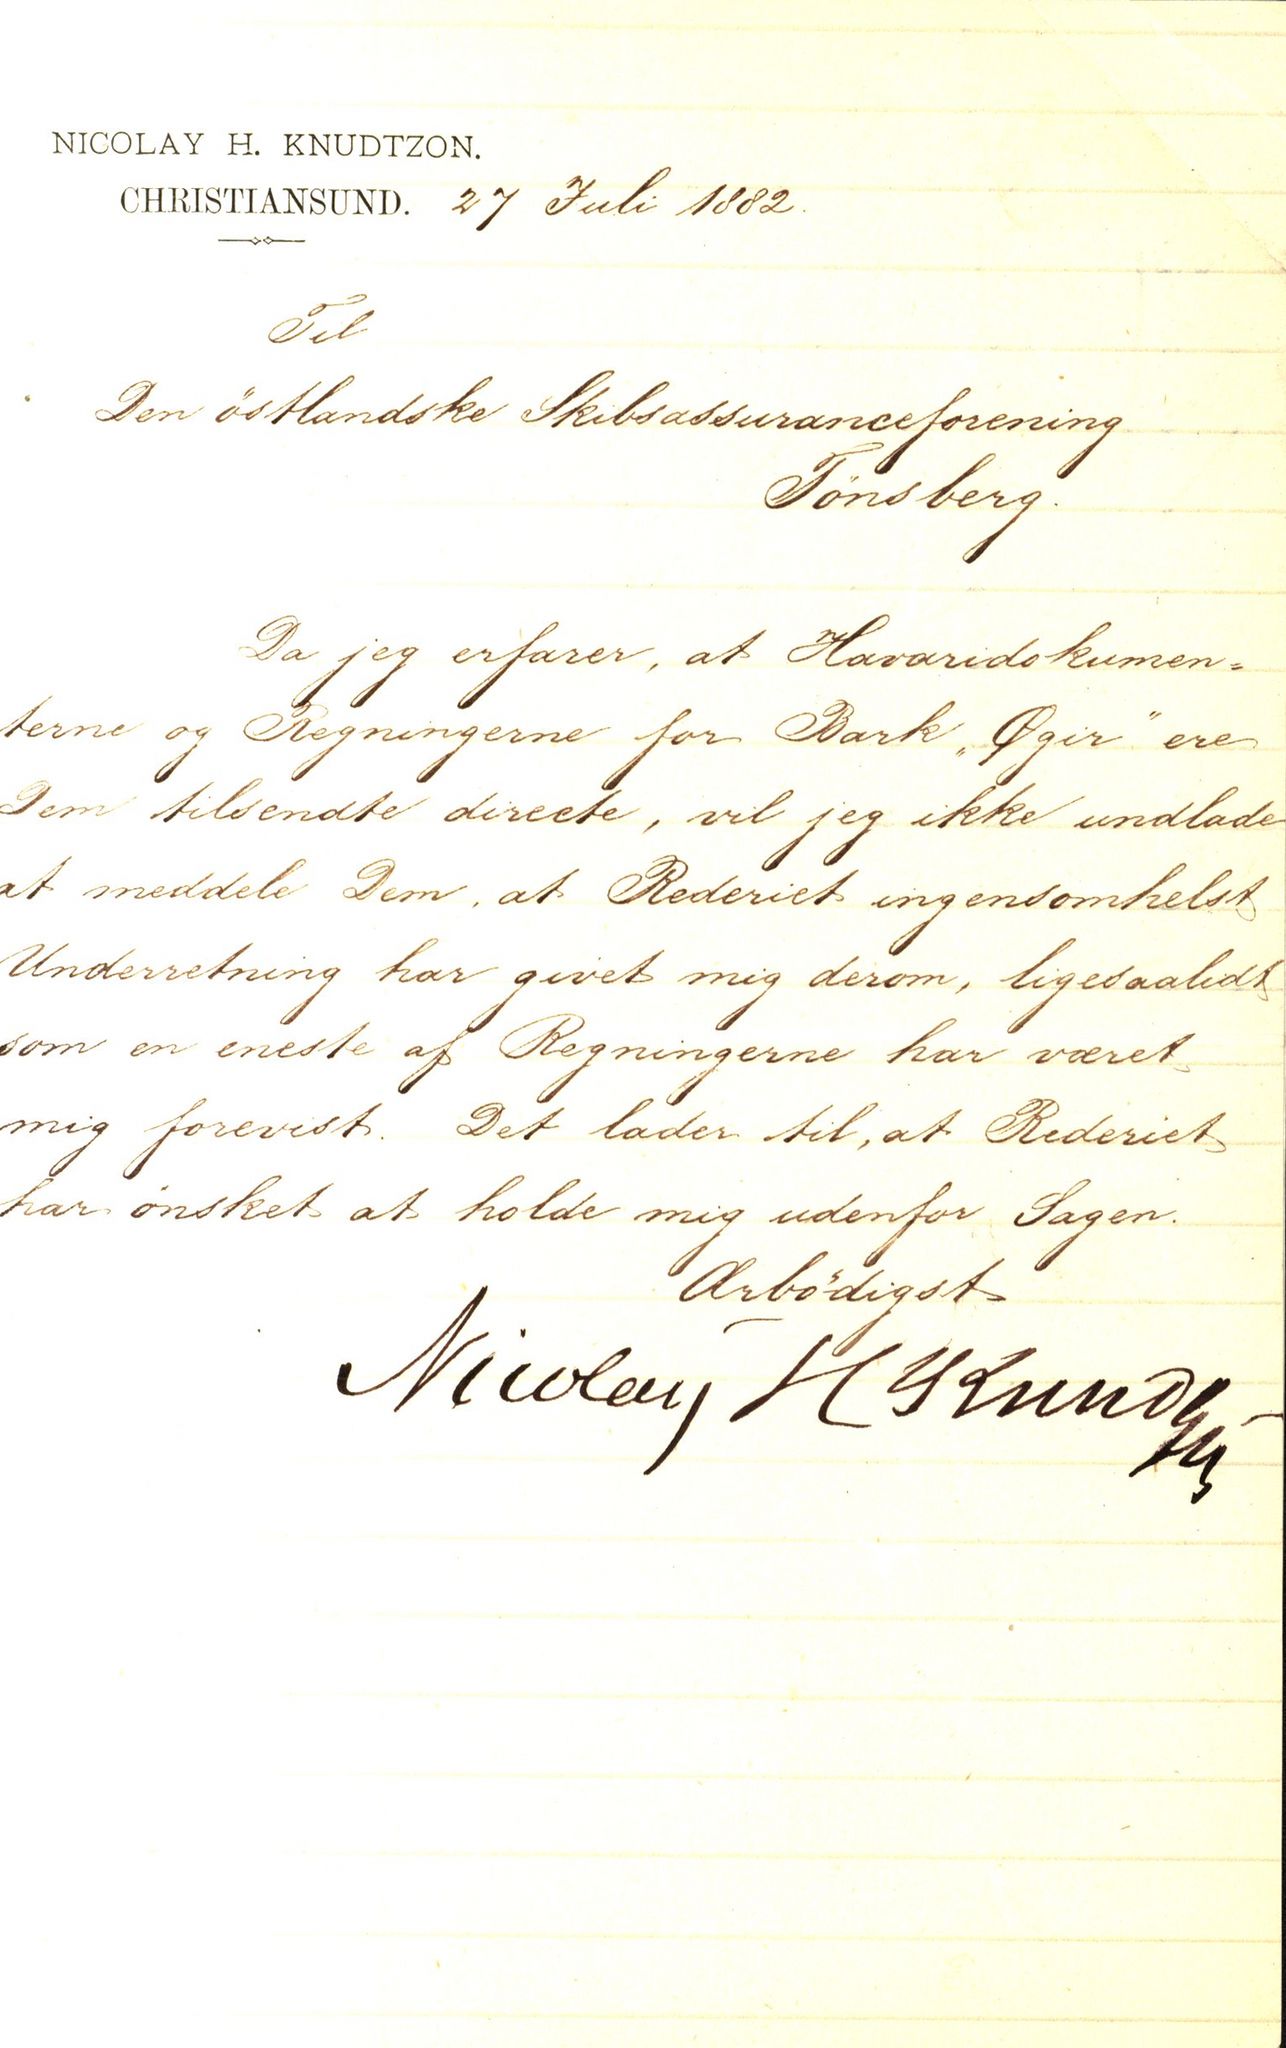 NICOLAY H. KNUDTZON.
CHRISTIANSUND. 27 Juli 1882.
Til
Den östlandske Skibsassuranceforening
Tönsberg.
Da jeg erfarer, at Havaridokumen=
terne og Regningerne for Bark „Øgir" ere
Dem tilsendte directe, vil jeg ikke undlade
at meddele Dem, at Rederiet ingensomhelst
Underretning har givet mig derom, ligesaalidt
som en eneste af Regningerne har været
mig forevist. Det lader til, at Rederiet
har önsket at holde mig udenfor Sagen.
Ærbödigst
Nicolay H Knudtzon